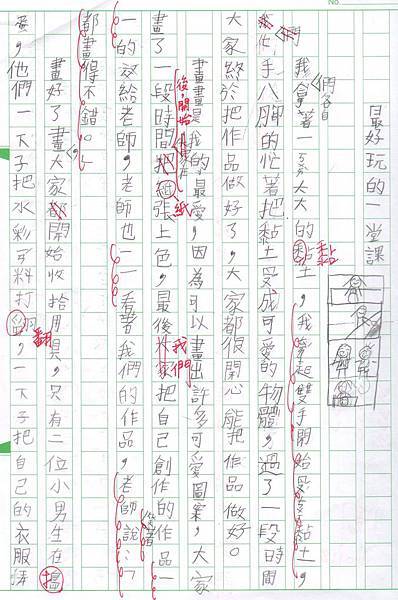 No.
最好玩的一堂課
我拿著一大大的黏土,我拿起雙手開始受黏土,
們各自
黏
手八腳的忙著把黏土受成可愛的物體,過了一段時間
大家終於把作品做好了,大家都很開心能把作品做好。
畫畫是我的最愛,因為可以畫出許多可愛圖案,大家
後,開始
畫了一段時間把紙張上色,最後大家把自己創作的作品一
紙
我們
一的交給老師,老師也一一看著我們的作品,老師說:「
笑著
都畫得不錯。」
畫好了畫大家都開始收拾用具,只有二位小男生在搗
搗
蛋,他們一下子把水彩料打翻,一下子把自己的衣服弄
翻